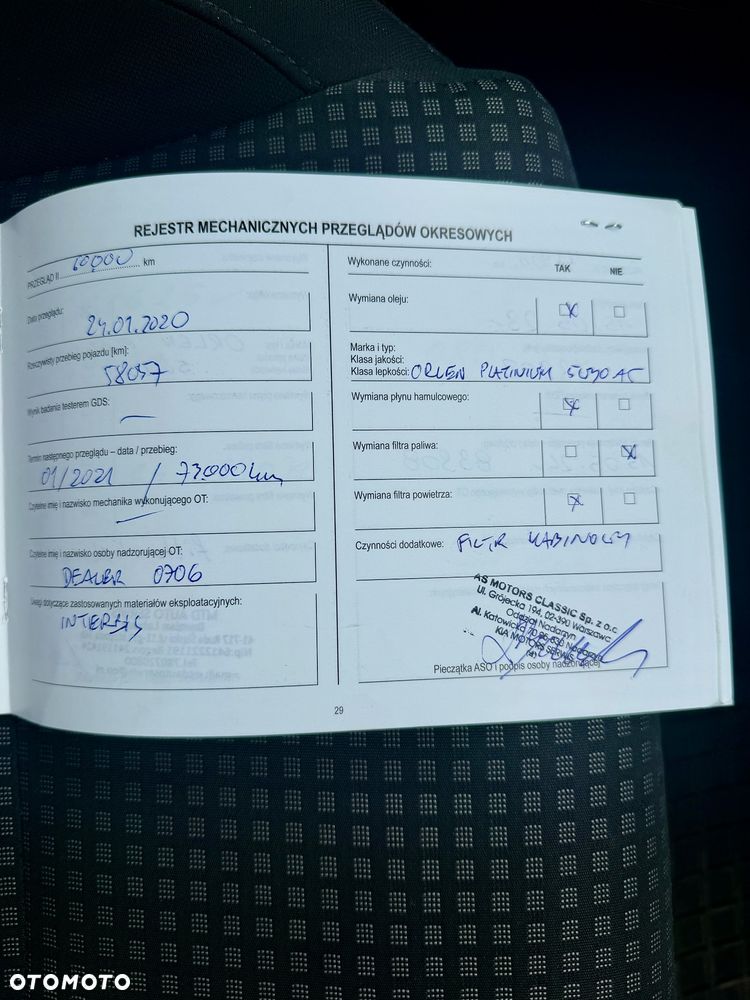 REJESTR MECHANICZNYCH PRZEGLĄDÓW OKRESOWYCH
PRZEGLĄD II 60000 km
Data przeglądu:
24.01.2020
Rzeczywisty przebieg pojazdu [km]:
58057
Wynik badania testerem GDS:
—
Termin następnego przeglądu – data / przebieg:
01/2021 / 73.000 km
Czytelne imię i nazwisko mechanika wykonującego OT:
—
Czytelne imię i nazwisko osoby nadzorującej OT:
DEALER 0706
Uwagi dotyczące zastosowanych materiałów eksploatacyjnych:
Wykonane czynności: TAK NIE
Wymiana oleju:
Marka i typ:
Klasa jakości:
Klasa lepkości: ORLEN PLATINIUM 5W30
Wymiana płynu hamulcowego:
Wymiana filtra paliwa:
Wymiana filtra powietrza:
Czynności dodatkowe: FILTR KABINOWY
AS MOTORS CLASSIC Sp. z o.o.
Ul. Grójecka 194, 02-390 Warszawa
Oddział Nadarzyn
Al. Katowicka 70 Nadarzyn
KIA MOTORS SERWIS
Pieczątka ASO i podpis osoby nadzorującej
29
OTOMOTO